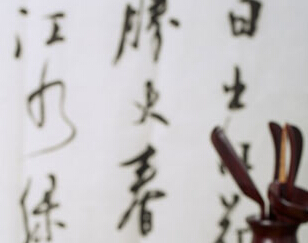 日出江花
勝火春
江水綠